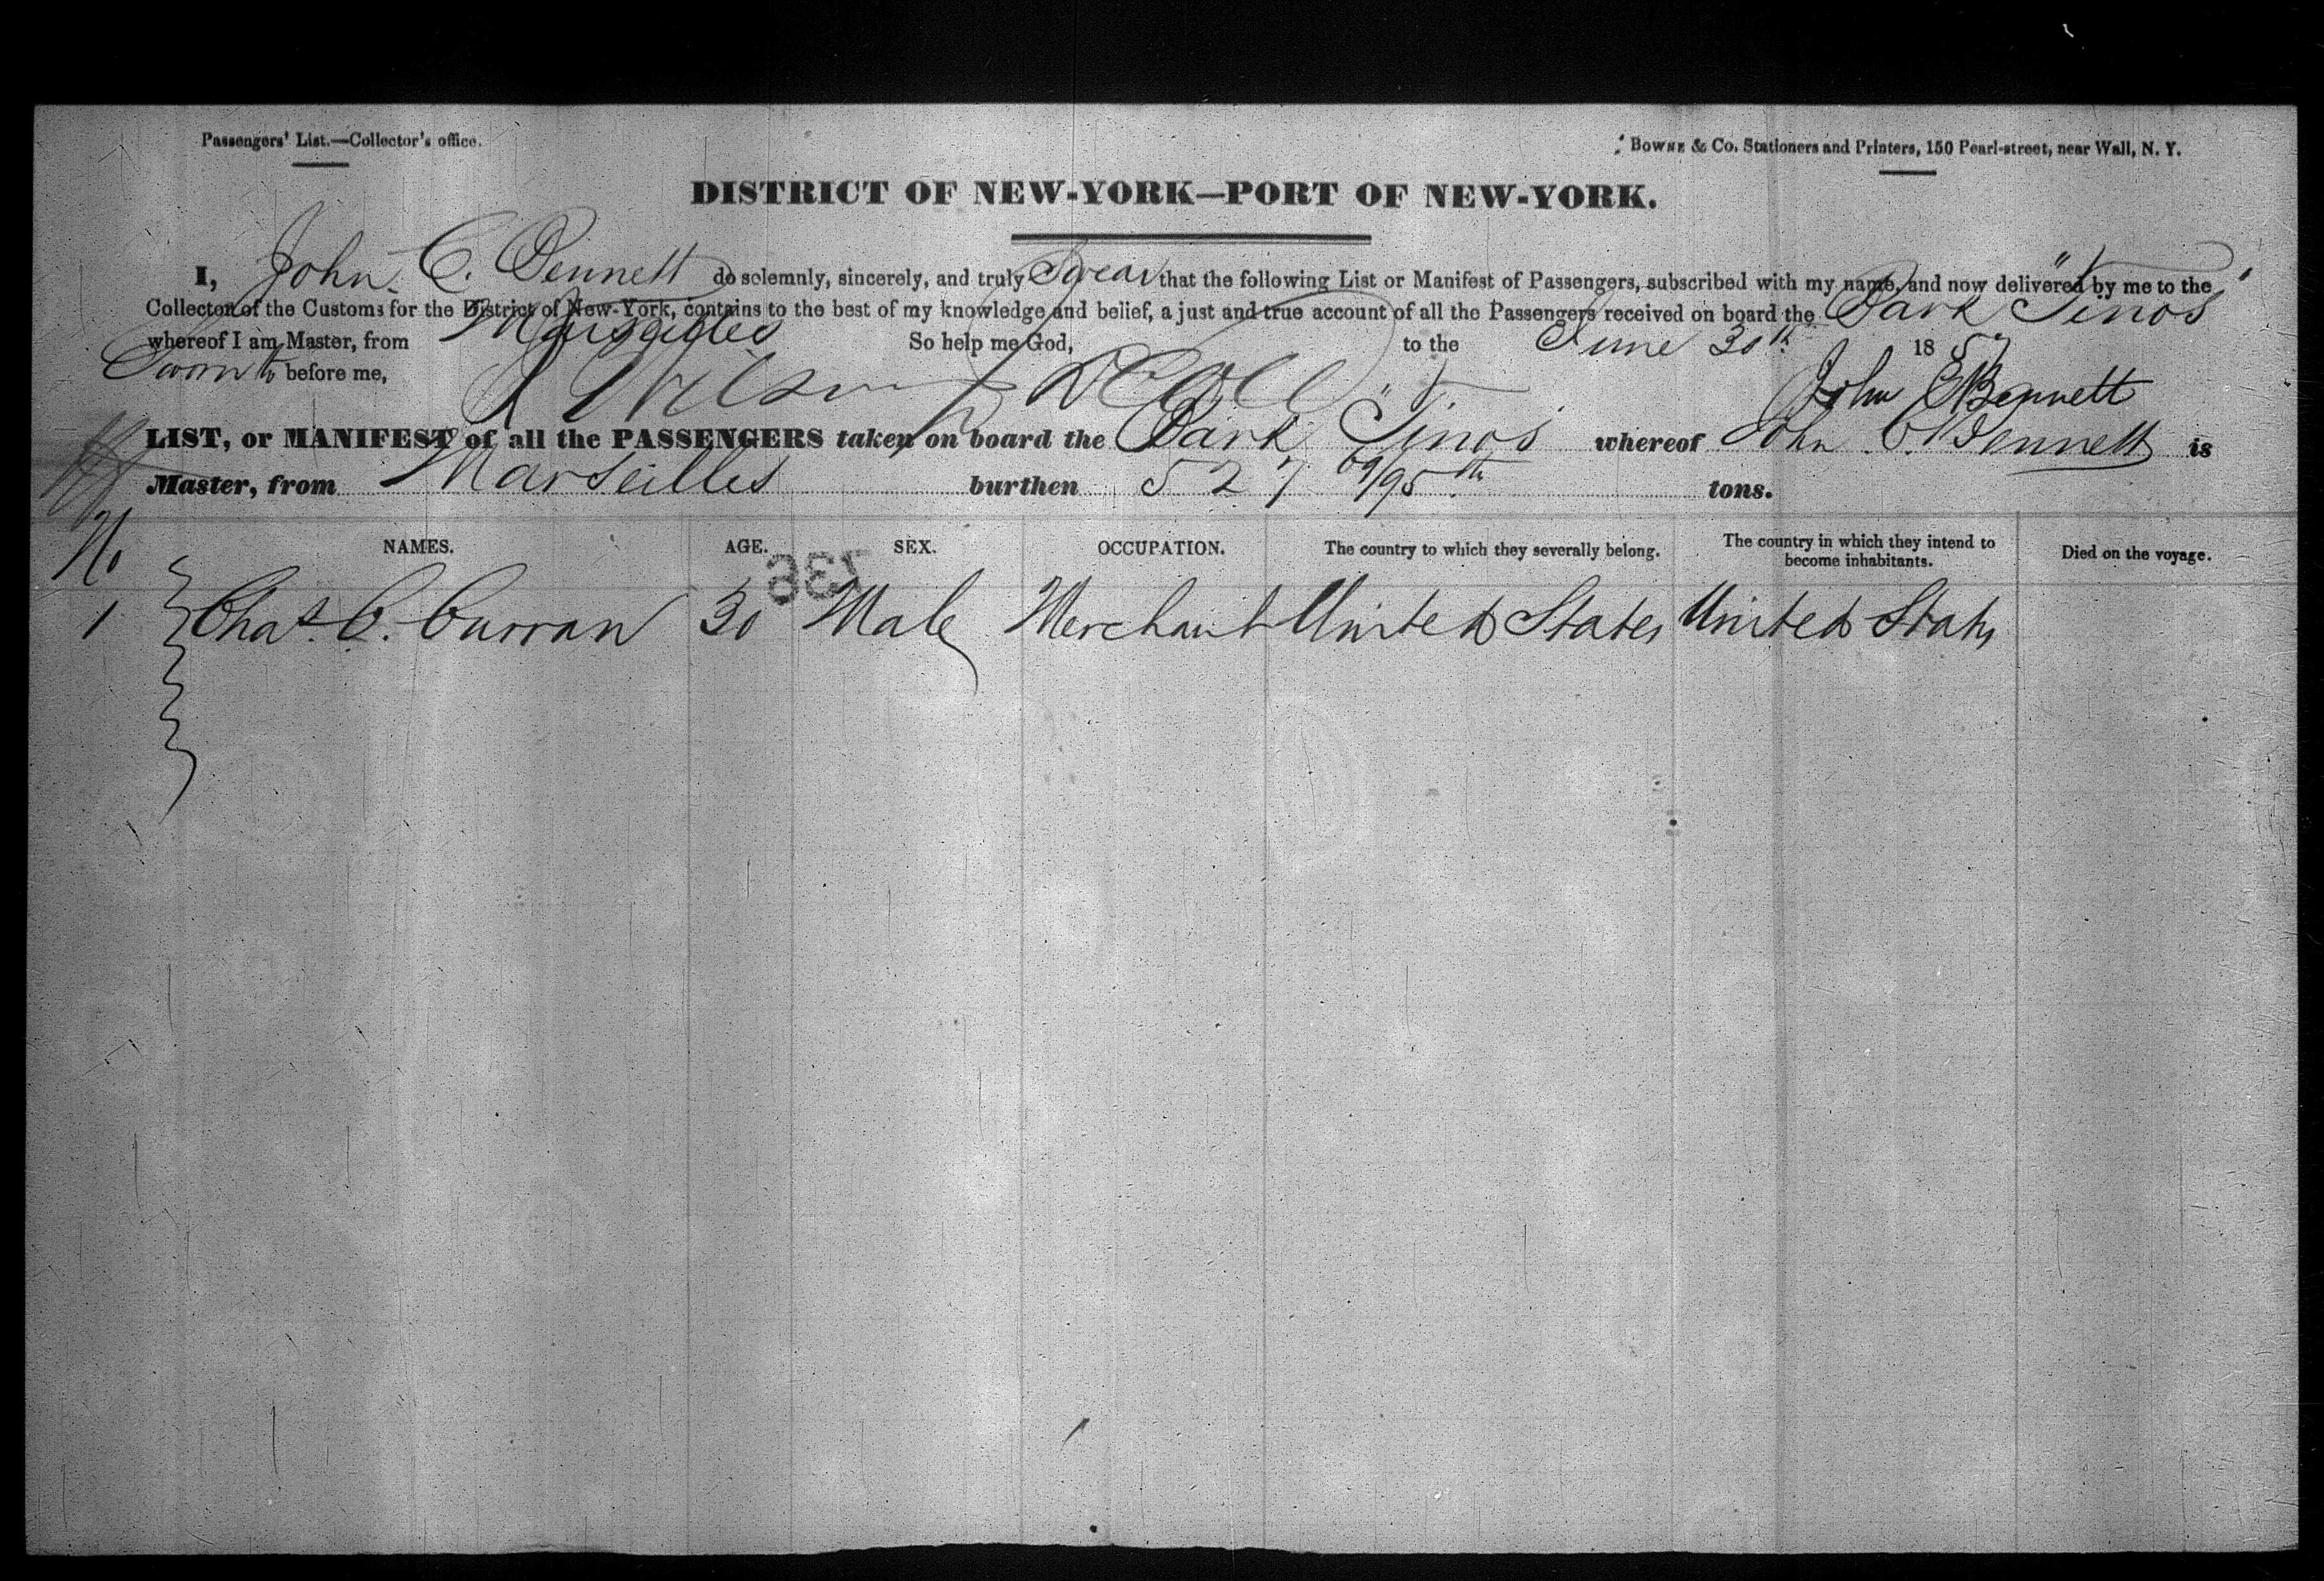 Passengers' List.—Collector's office.
Bowne & Co. Stationers and Printers, 150 Pearl-street, near Wall, N. Y.
DISTRICT OF NEW-YORK—PORT OF NEW-YORK.
I, John C. Bennett do solemnly, sincerely, and truly Swear that the following List or Manifest of Passengers, subscribed with my name, and now delivered by me to the
Collector of the Customs for the District of New-York, contains to the best of my knowledge and belief, a just and true account of all the Passengers received on board the Bark "Tinos"
whereof I am Master, from Marseilles So help me God, to the June 30th 1857
Sworn to before me,
John C Bennett
LIST, or MANIFEST of all the PASSENGERS taken on board the Bark "Tinos" whereof John C. Bennett is
Master, from Marseilles burthen 527 69/95th tons.
No NAMES. AGE. SEX. OCCUPATION. The country to which they severally belong. The country in which they intend to become inhabitants. Died on the voyage.
736
1 Chas. C. Curran 30 Male Merchant United States United States